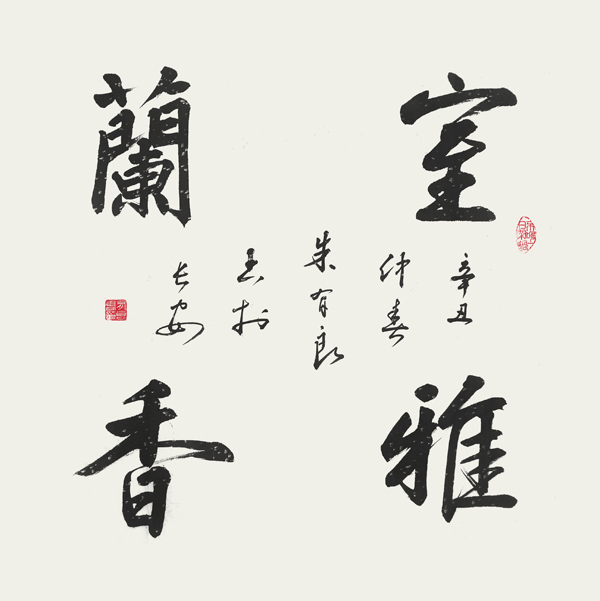 室雅
蘭香
辛丑
仲春
朱有良
书於
长安